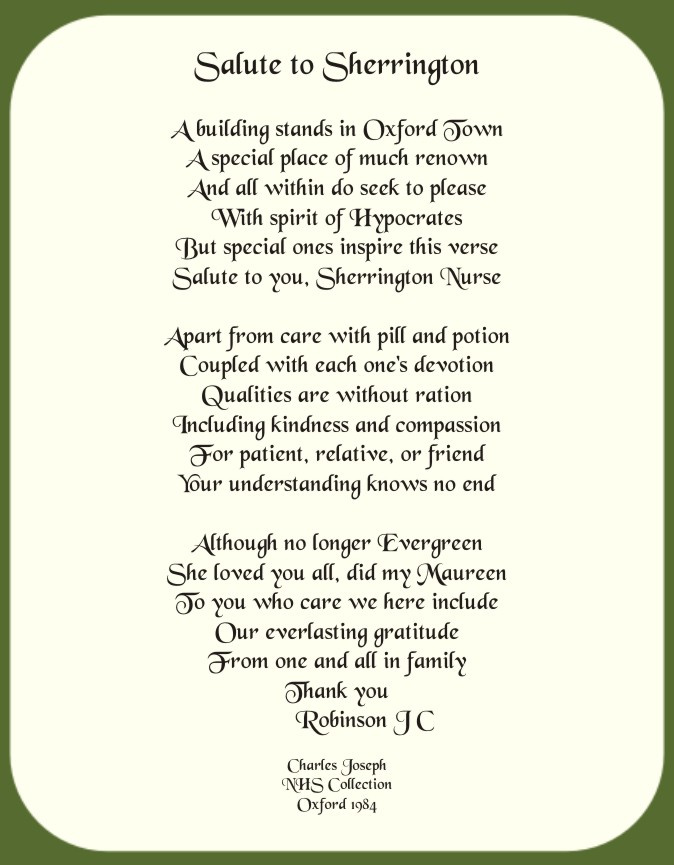 Salute to Sherrington
A building stands in Oxford Town
A special place of much renown
And all within do seek to please
With spirit of Hypocrates
But special ones inspire this verse
Salute to you, Sherrington Nurse
Apart from care with pill and potion
Coupled with each one's devotion
Qualities are without ration
Including kindness and compassion
For patient, relative, or friend
Your understanding knows no end
Although no longer Evergreen
She loved you all, did my Maureen
To you who care we here include
Our everlasting gratitude
From one and all in family
Thank you
Robinson J C
Charles Joseph
NHS Collection
Oxford 1984